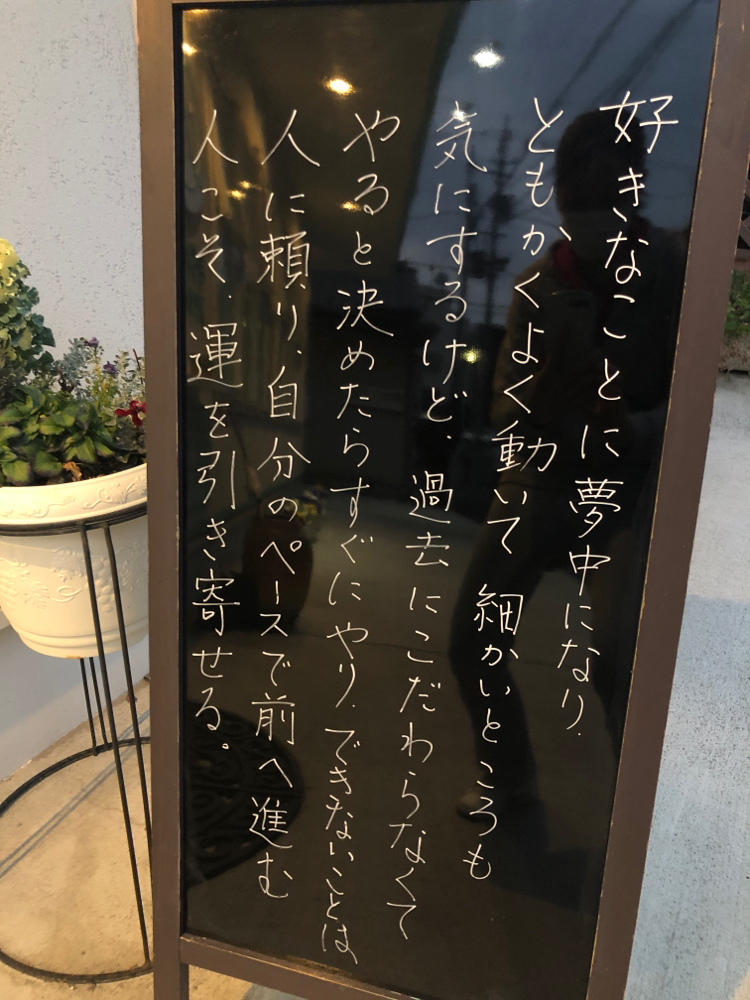 好きなことに夢中になり、
ともかくよく動いて 細かいところも
気にするけど、過去にこだわらなくて
やると決めたらすぐにやり、できないことは
人に頼り、自分のペースで前へ進む
人こそ、運を引き寄せる。